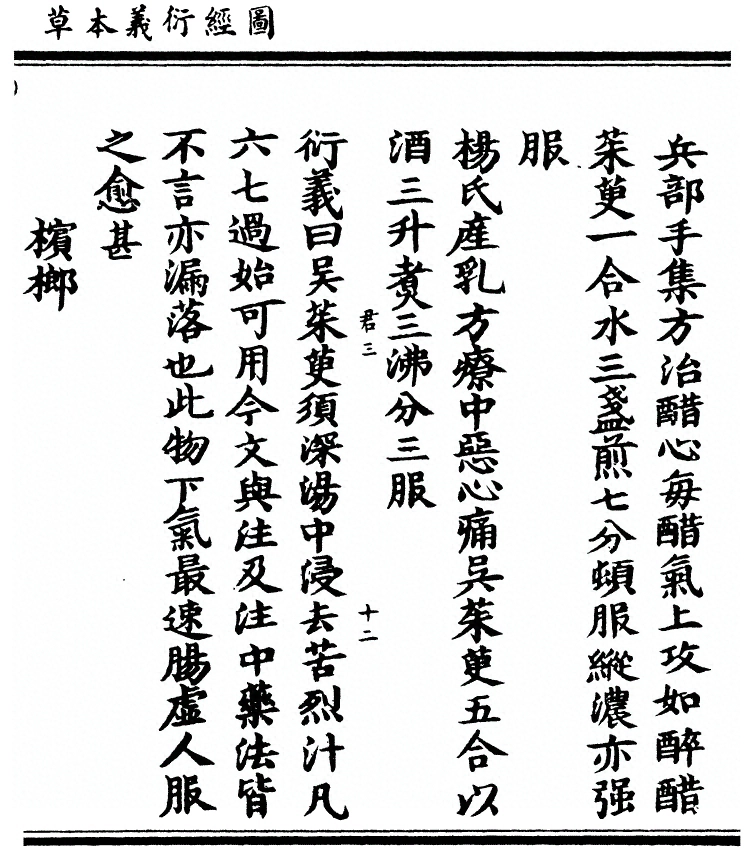 圖經衍義本草
兵部手集方治醋心每醋氣上攻如醉醋
茱萸一合水三盞煎七分頓服縱濃亦强
服
楊氏産乳方療中惡心痛吳茱萸五合以
酒三升煮三沸分三服
君三
十二
衍義曰吳茱萸須深湯中浸去苦烈汁凡
六七過始可用今文與注及注中藥法皆
不言亦漏落也此物下氣最速腸虛人服
之愈甚
檳榔